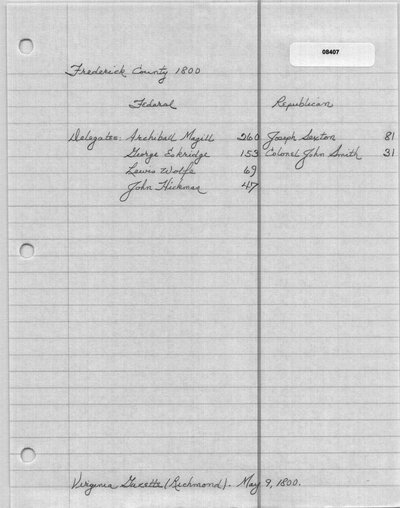 08407
Frederick County 1800
Federal Republican
Delegates: Archibald Magill 260 Joseph Sexton 81
George Eskridge 153 Colonel John Smith 31
Lewis Wolfe 69
John Hickman 47
Virginia Gazette (Richmond). May 9, 1800.